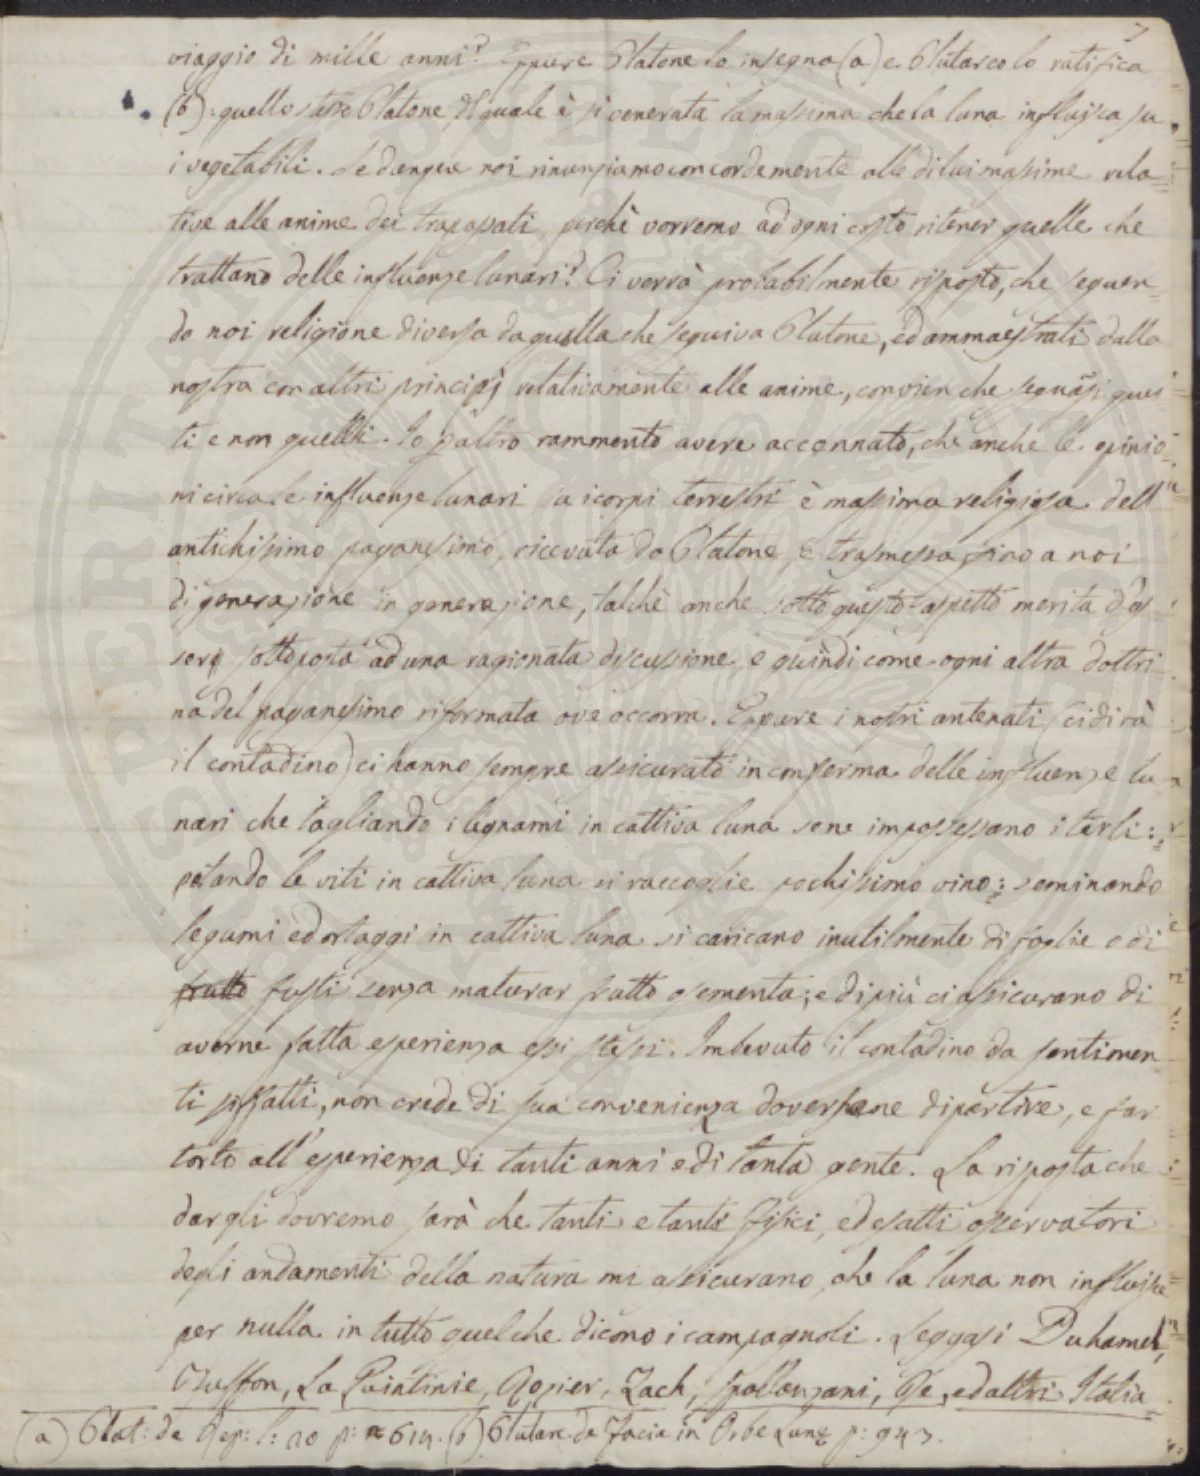 7
viaggio di mille anni? Eppure Platone lo insegna (a) e Plutarco lo ratifica
(b): quello stesso Platone del quale è sì venerata la massima che la luna influisca su
i vegetabili. Se dunque noi rinunziamo concordemente alle di lui massime rela=
tive alle anime dei trapassati perchè vorremo ad ogni costo ritener quelle che
trattano delle influenze lunari? Ci verrà probabilmente risposto, che seguen=
do noi religione diversa da quella che seguiva Platone, ed ammaestrati dalla
nostra con altri principj relativamente alle anime, convien che seguansi ques
ti e non quelli. Io p altro rammento avere accennato, che anche le opinio=
ni circa le influenze lunari su i corpi terrestri è massima religiosa dell'
antichissimo paganesimo, ricevuta da Platone, e trasmessa fino a noi
di generazione in generazione, talchè anche sotto questo aspetto merita d'es=
sere sottoposta ad una ragionata discussione, e quindi come ogni altra dottri=
na del paganesimo riformata ove occorra. Eppure i nostri antenati (ci dirà
il contadino) ci hanno sempre assicurato in conferma delle influenze lu
nari che tagliando i legnami in cattiva luna sene impossessano i tarli:
potando le viti in cattiva luna si raccoglie pochissimo vino: seminando
legumi ed ortaggi in cattiva luna si caricano inutilmente di foglie e di
frutto fusti senza maturar frutto o sementa; e di più ci assicurano di
averne fatta esperienza essi stessi. Imbevuto il contadino da sentimen
ti siffatti, non crede di sua convenienza doversene dipartire, e far
torto all'esperienza di tanti anni e di tanta gente. La risposta che
dargli dovremo sarà che tanti e tanti fisici, ed esatti osservatori
degli andamenti della natura mi assicurano, che la luna non influisce
per nulla in tutto quel che dicono i campagnoli. Leggasi Duhamel,
Buffon, La Quintinie, Rozier, Zach, Spallanzani, Re, ed altri Italia=
(a) Plat: de Rep: l: 10 p: 614. (b) Plutarc. de Facie in Orbe Lunę p: 943.